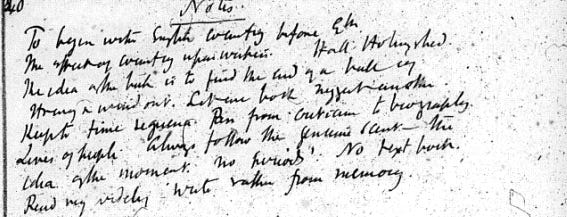 40
Notes.
To begin with English country before Eliz.
The effect of country upon writers. Hall. Holinshed.
The idea of the book is to find the end of a ball of
string & wind out. Let one book suggest another.
Keep to time sequence. Pass from criticism to biography.
Lives of people. Always follow the genuine scent — the
idea of the moment. No 'periods'. No text book.
Read very widely. Write rather from memory.